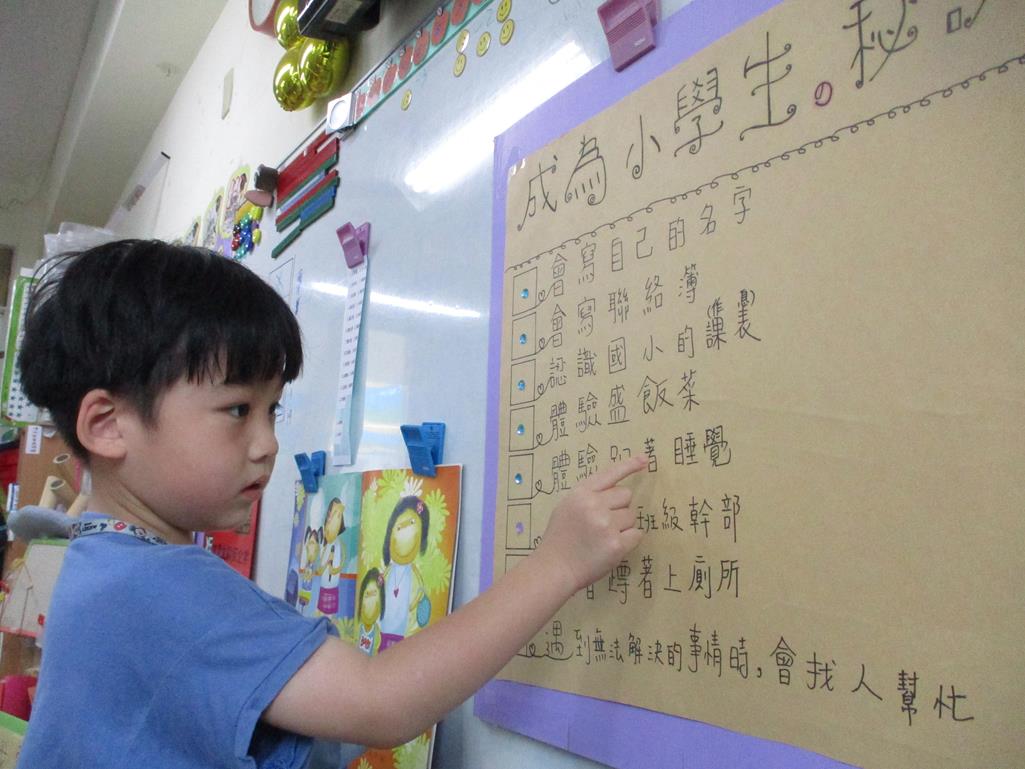 成為小學生の秘訣
會寫自己的名字
會寫聯絡簿
認識國小的課表(作息)
體驗盛飯菜
體驗趴著睡覺
班級幹部
蹲著上廁所
遇到無法解決的事情時,會找人幫忙